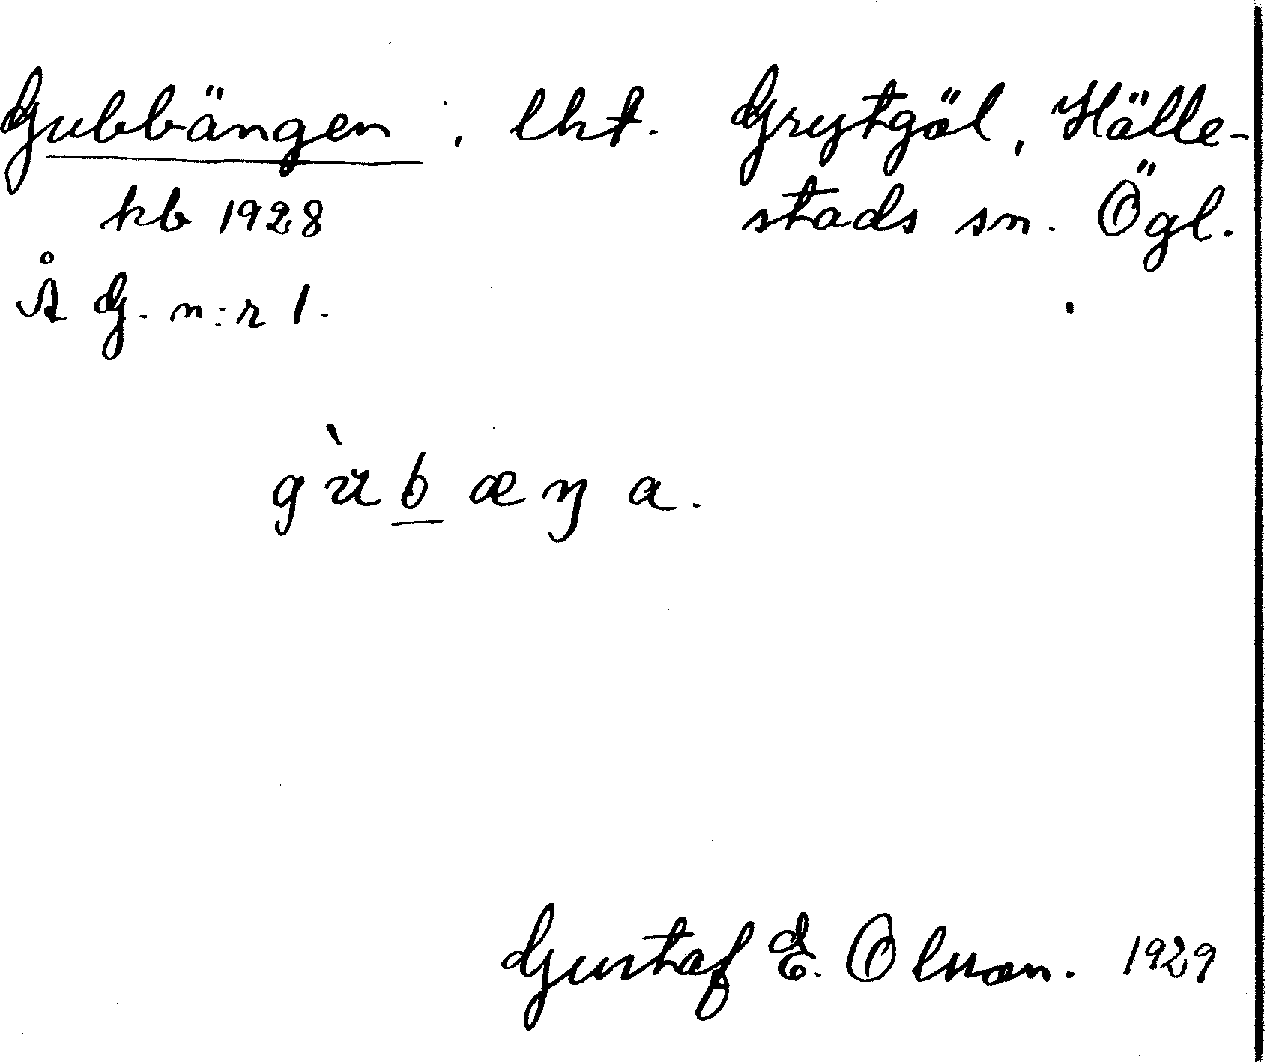 Gubbängen, lht. Grytgöl, Hälle-
kb 1928 stads sn. Ögl.
Å G. n:r 1.
gὺb̲æŋa.
Gustaf E. Olsson. 1929